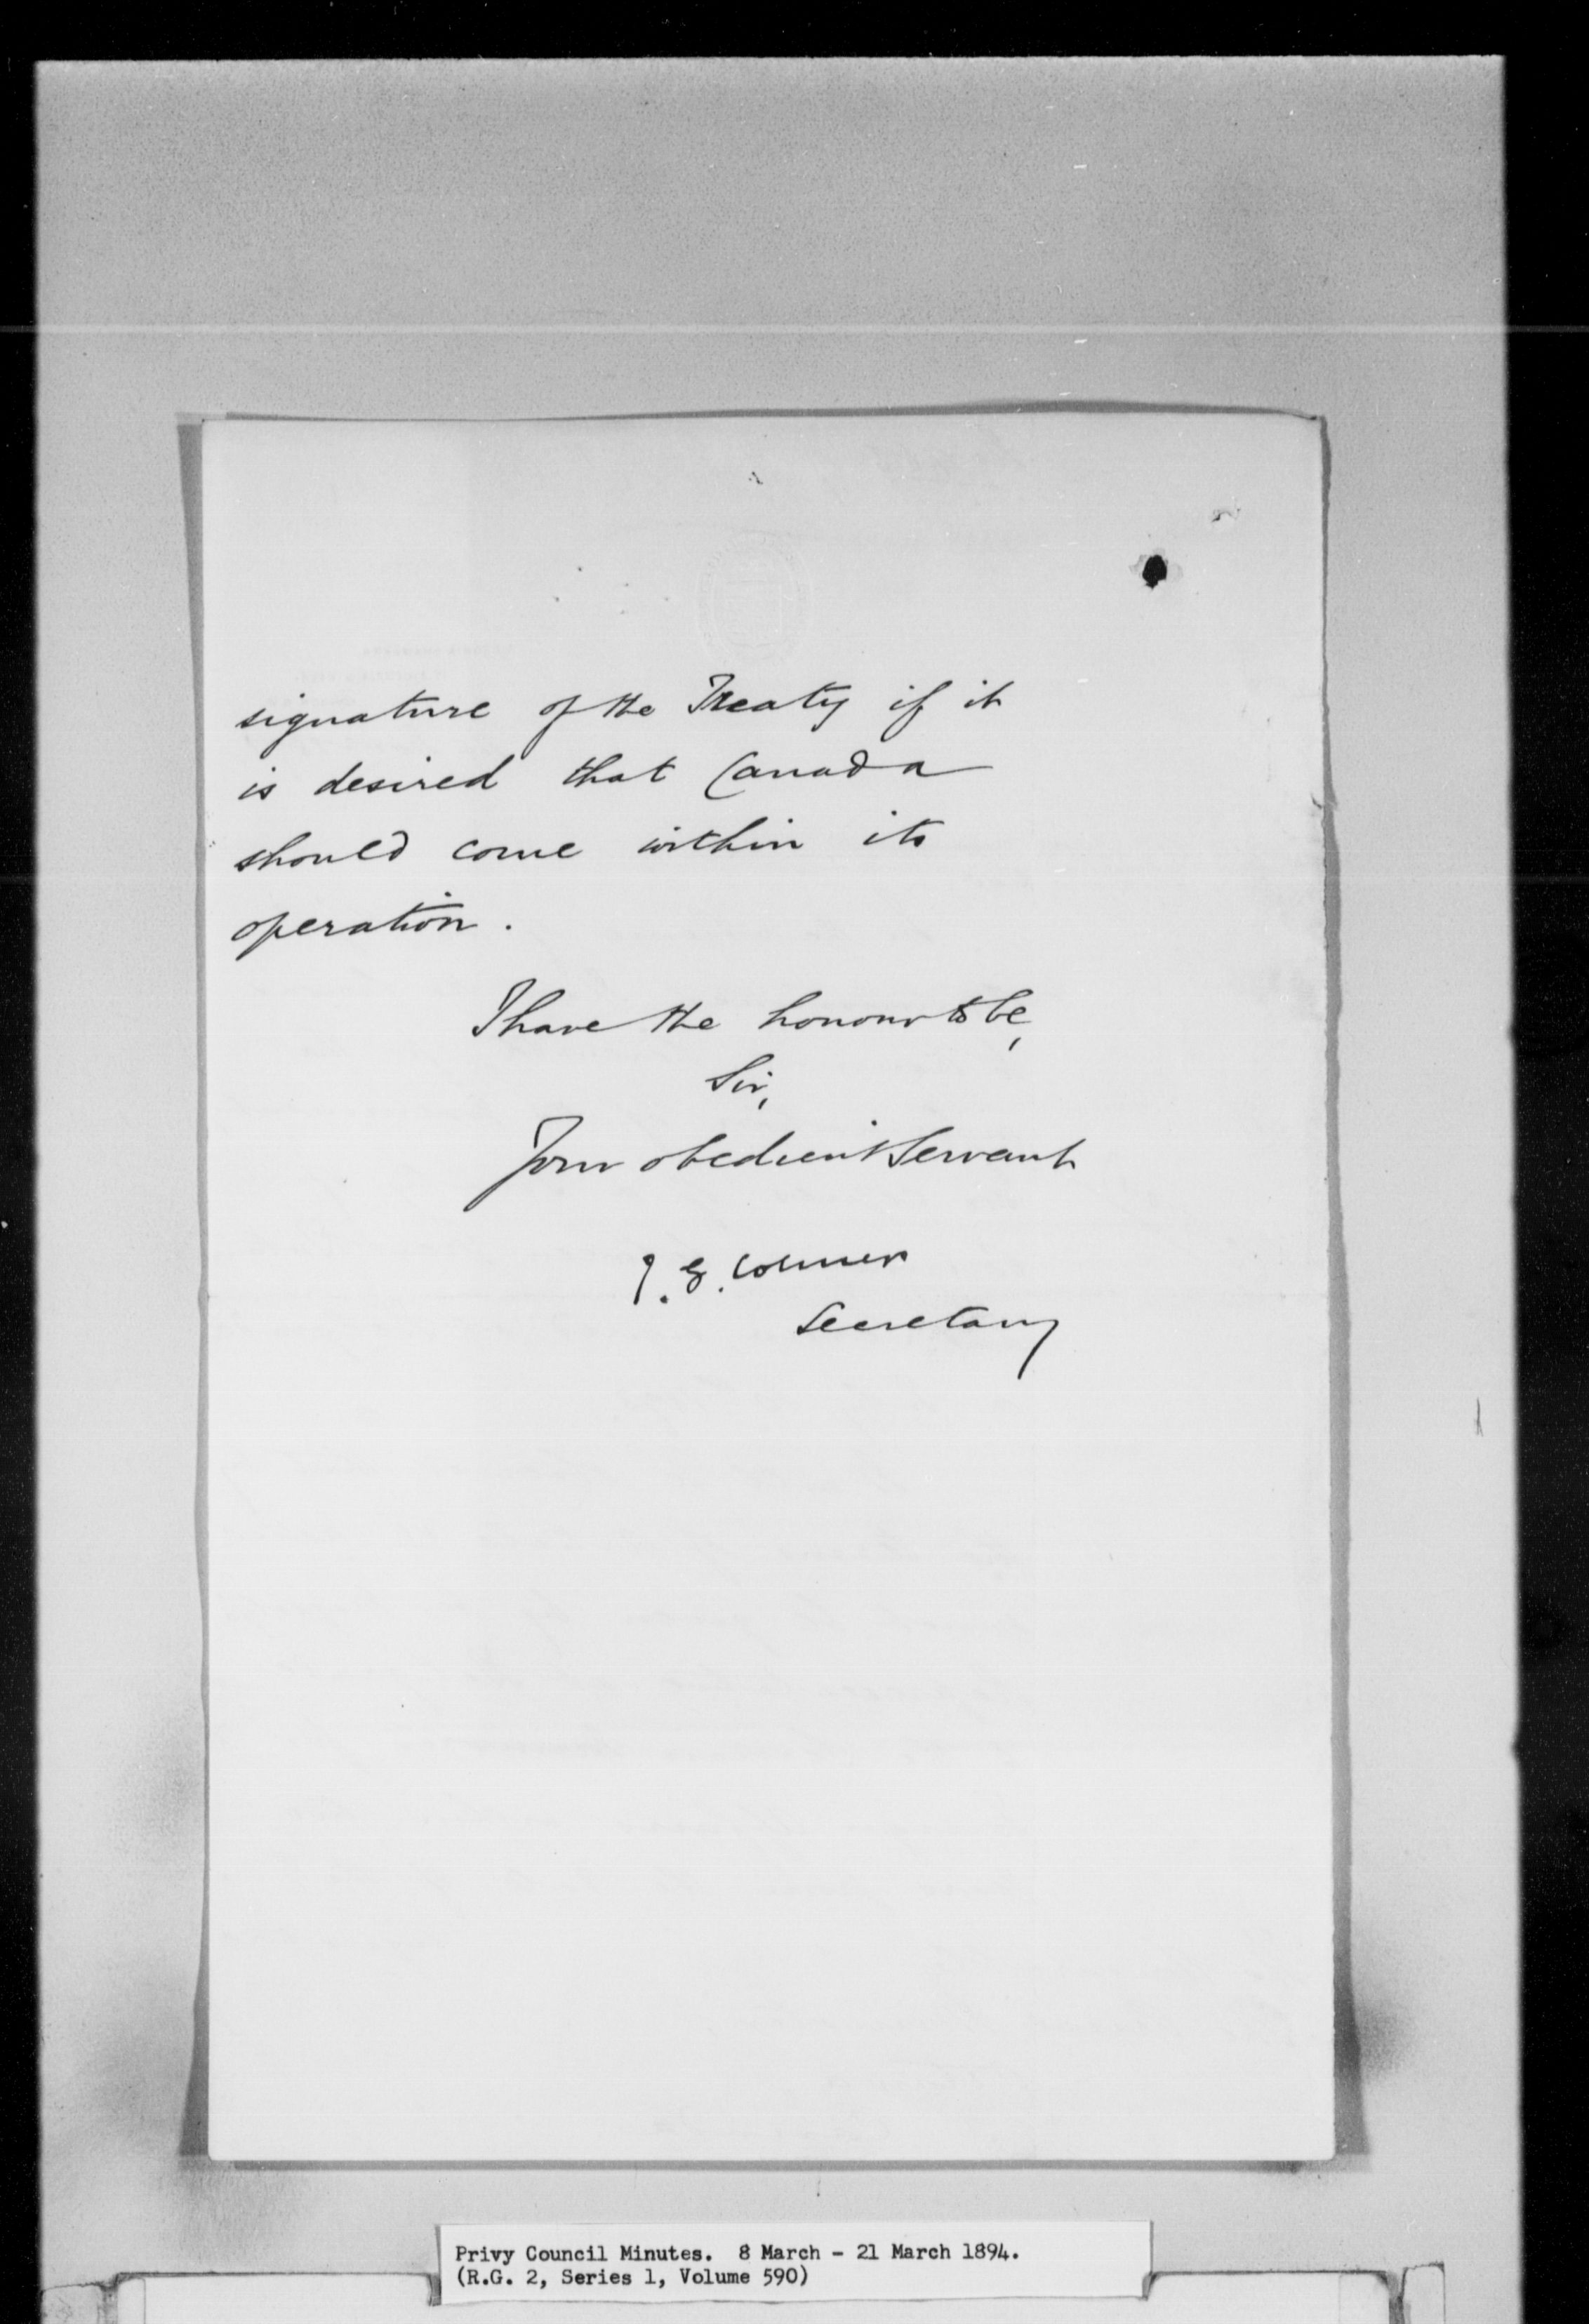 signature of the Treaty if it
is desired that Canada
should come within its
operation.
I have the honour to be,
Sir,
Your obedient Servant
J. G. Colmer
Secretary
Privy Council Minutes. 8 March - 21 March 1894.
(R.G. 2, Series 1, Volume 590)